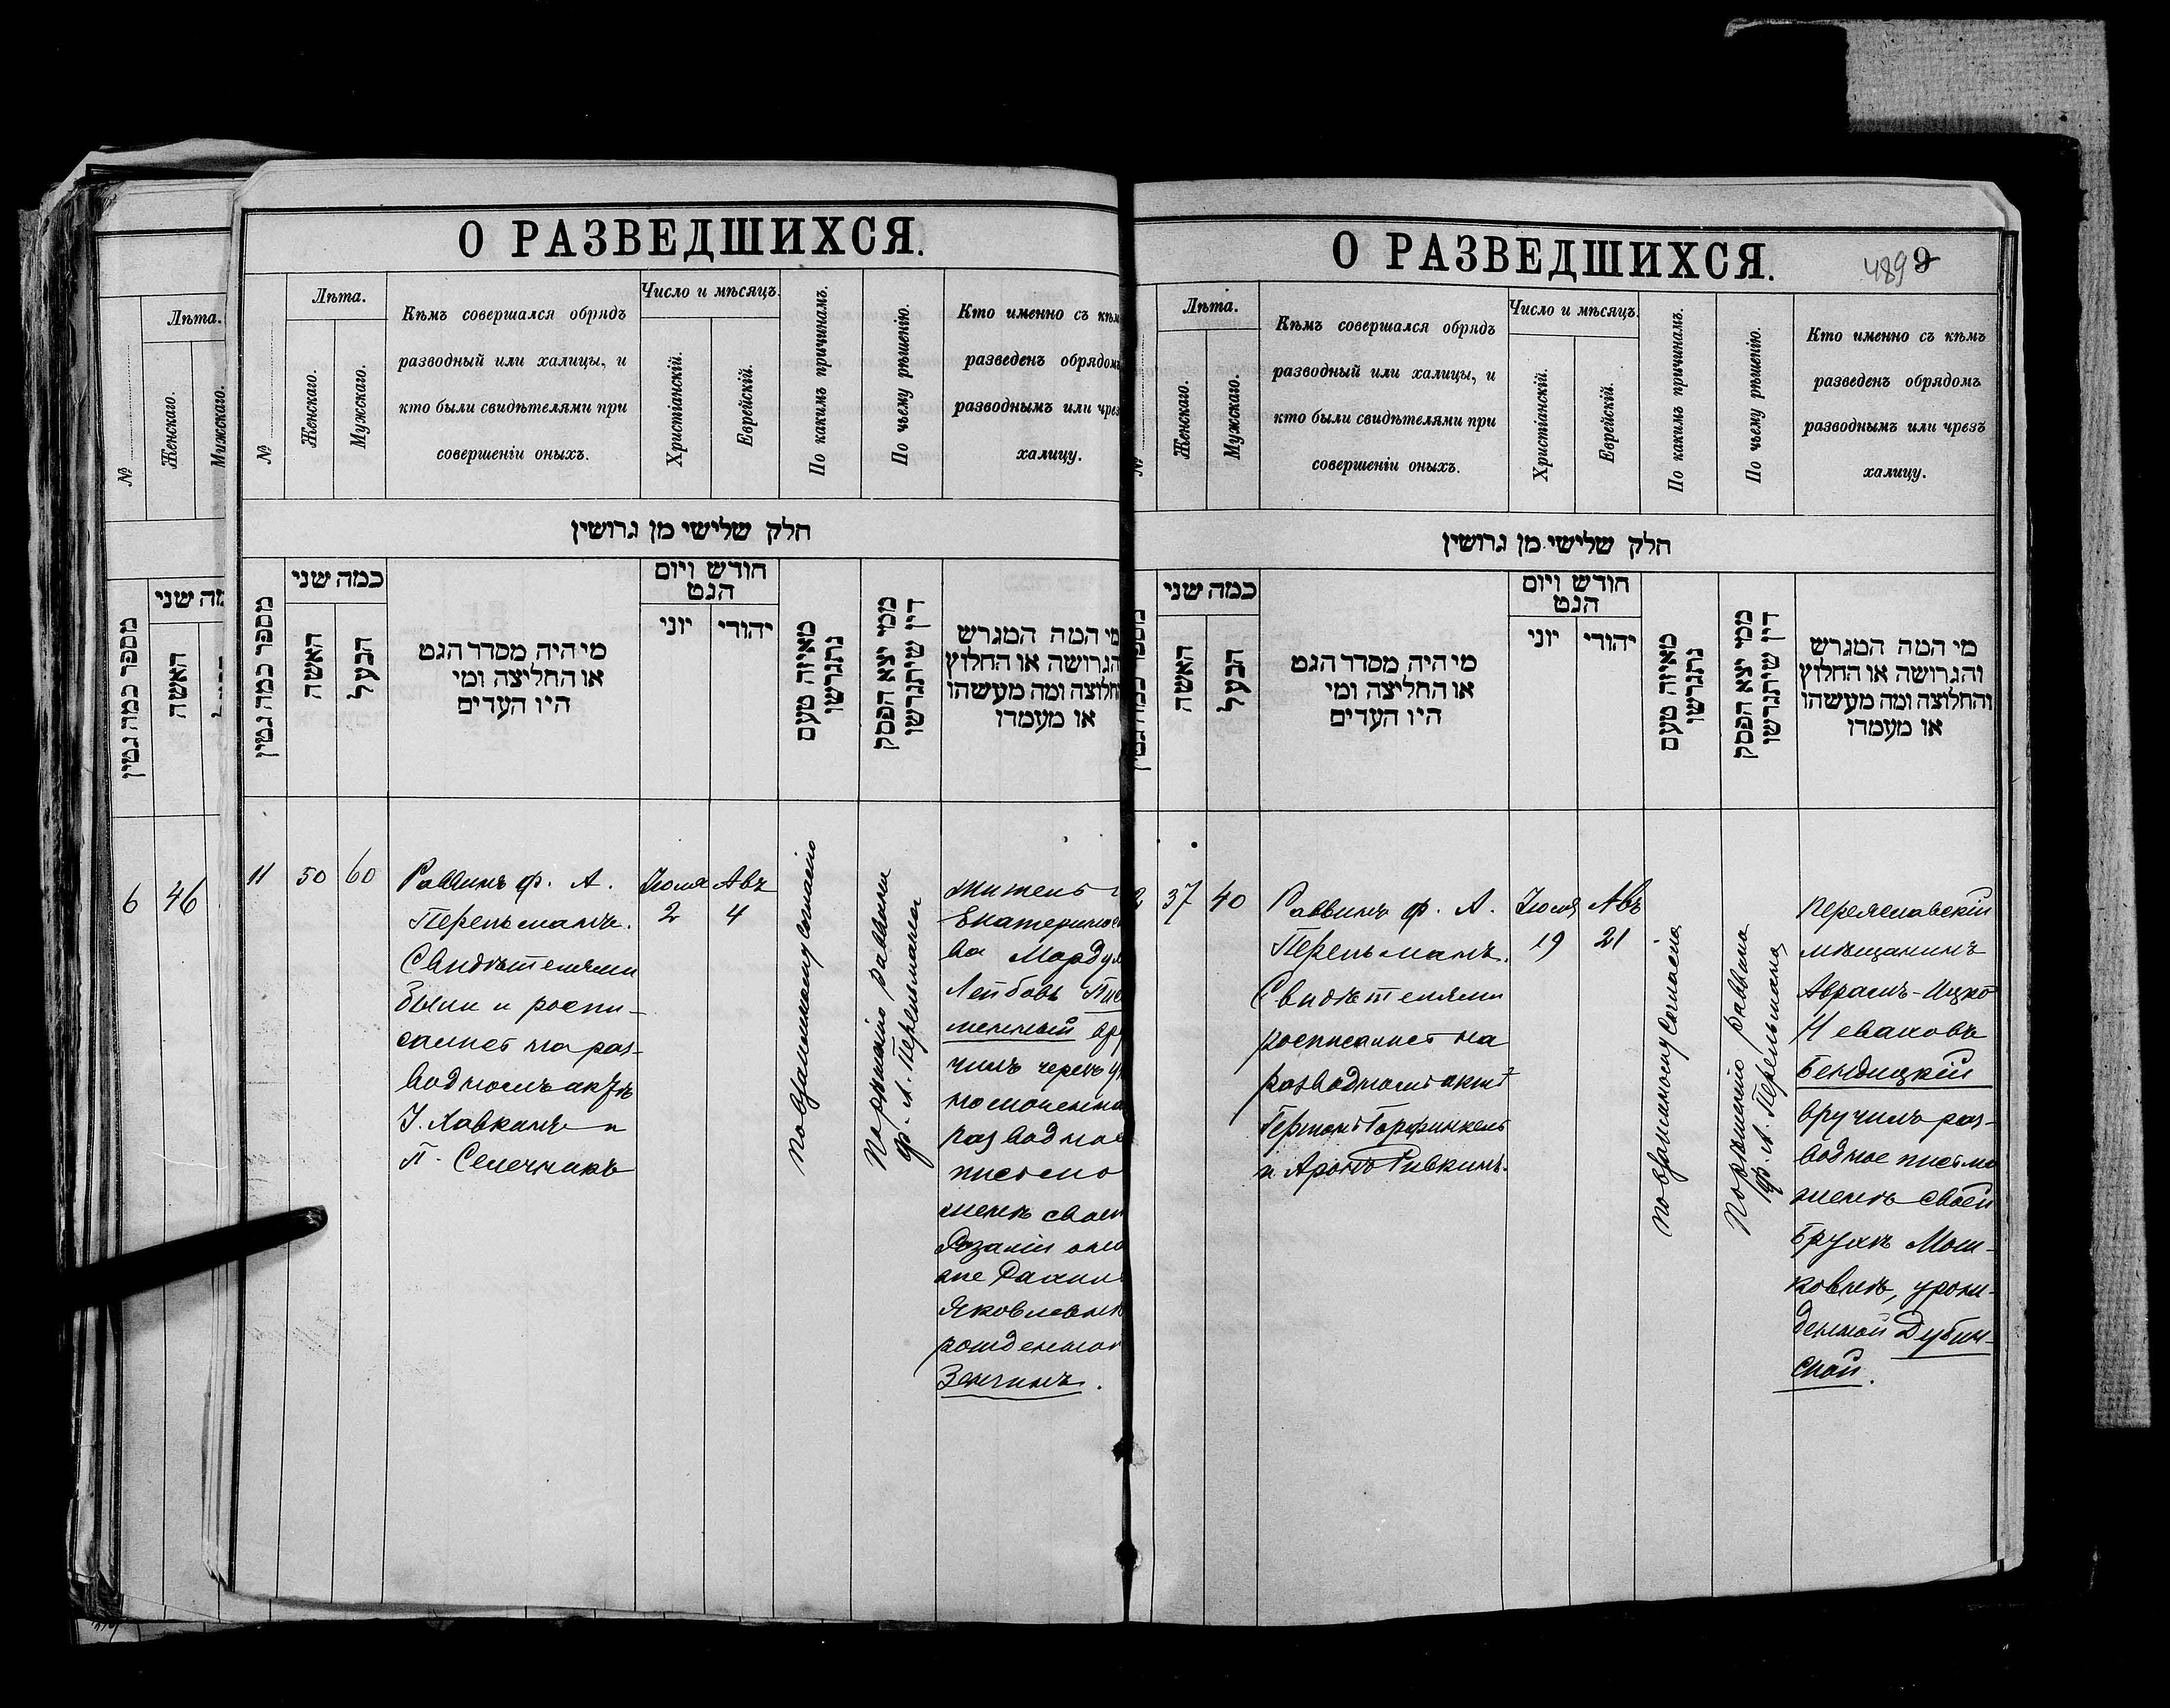 Лѣта.
№
Женскаго.
Мужскаго.
מספר כמה גטין
האשה
6 46
О РАЗВЕДШИХСЯ.
№
Лѣта.
Женскаго.
Мужскаго.
Кѣмъ совершался обрядъ
разводный или халицы, и
кто были свидѣтелями при
совершеніи оныхъ.
Число и мѣсяцъ.
Христіанскій.
Еврейскій.
По какимъ причинамъ.
По чьему рѣшенію.
Кто именно съ
разведенъ
разводнымъ или
халицу.
חלק שלישי מן גרושין
מספר כמה גטין
כמה שני
האשה
הבעל
מי היה מסדר הגט
או החליצה ומי
היו העדים
חודש ויום
הגט
יוני
יהודי
מאיזה טעם
נתגרשו
ממי יצא הפסק
דין שיתגרשו
מי המה המגרש
והגרושה או החלוץ
והחלוצה ומה מעשהו
או מעמדו
11
50
60
Раввинъ Ф. А.
Перельманъ.
Свидѣтелями
были и роспи-
сались на раз-
водномъ актѣ
Х. Хавкинъ и
П.
Іюля
2
Авъ
4
по взаимному согласію
По рѣшенію раввина
Ф. А. Перельмана
житель
ва
Лейбовъ
менный
чилъ черезъ
разводное
письмо
женѣ своей
она
же
Яковлевнѣ
рожденной
О РАЗВЕДШИХСЯ.
489
№
Лѣта.
Женскаго.
Мужскаго.
Кѣмъ совершался обрядъ
разводный или халицы, и
кто были свидѣтелями при
совершеніи оныхъ.
Число и мѣсяцъ.
Христіанскій.
Еврейскій.
По какимъ причинамъ.
По чьему рѣшенію.
Кто именно съ кѣмъ
разведенъ обрядомъ
разводнымъ или чрезъ
халицу.
חלק שלישי מן גרושין
כמה שני
האשה
הבעל
מי היה מסדר הגט
או החליצה ומי
היו העדים
חודש ויום
הגט
יוני
יהודי
מאיזה טעם
נתגרשו
ממי יצא הפסק
דין שיתגרשו
מי המה המגרש
והגרושה או החלוץ
והחלוצה ומה מעשהו
או מעמדו
37
40
Раввинъ Ф. А.
Перельманъ.
Свидѣтелями
росписались на
разводномъ актѣ
Германъ Гарфинкель
и Аронъ Ривкинъ.
Іюля
19
Авъ
21
по взаимному согласію
По рѣшенію раввина
Ф. А. Перельмана
Переяславскій
мѣщанинъ
Аврамъ-Ицко
Бендицкій
вручилъ раз-
водное письмо
женѣ своей
Брухѣ Мош-
ковнѣ, урож-
денной Дубин-
ской.